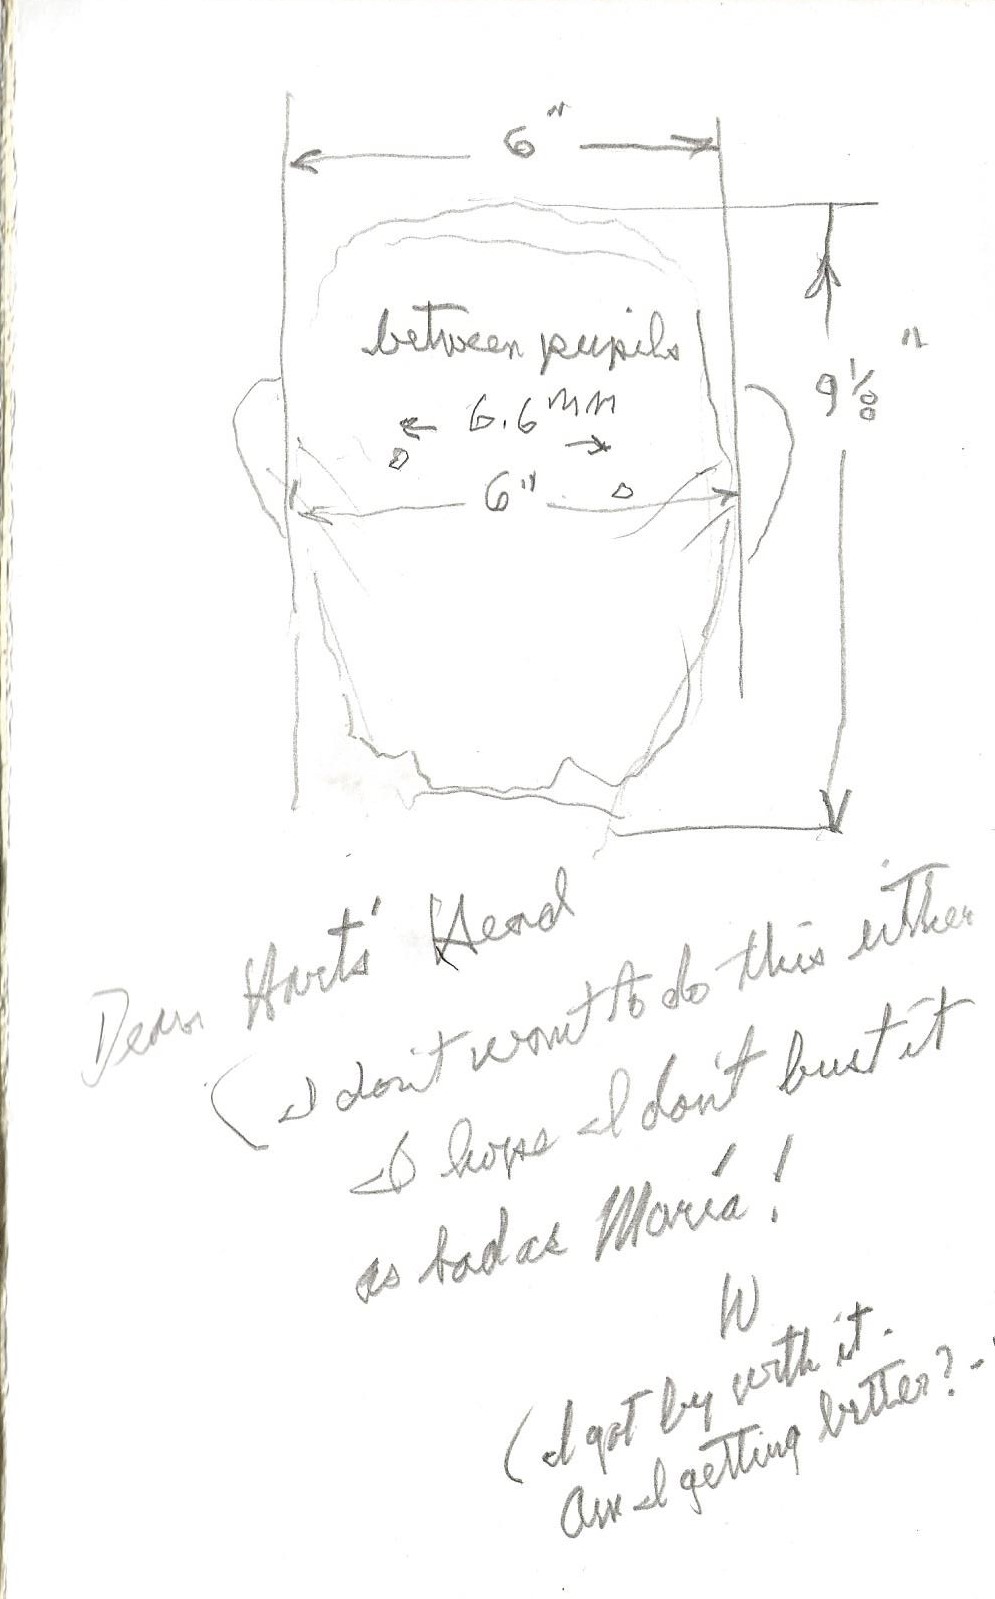 6"
between pupils
6.6 mm
9 1/8"
6"
Dean Hart's Head
(I don't want to do this either
I hope I don't bust it
as bad as María!
W
(I got by with it.
Am I getting better? -